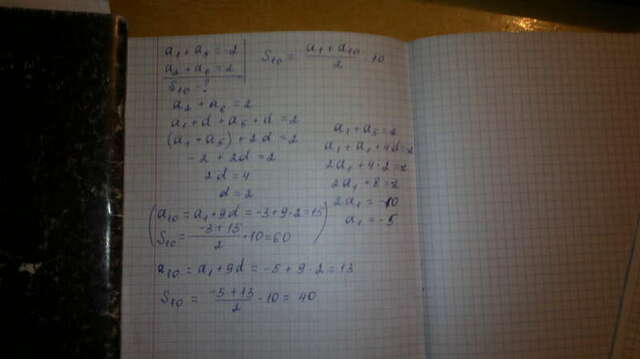 a₁ + a₅ = -2
a₂ + a₆ = 2
S₁₀ = ?
S₁₀ = (a₁ + a₁₀)/2 · 10
a₂ + a₆ = 2
a₁ + d + a₅ + d = 2
(a₁ + a₅) + 2d = 2
-2 + 2d = 2
2d = 4
d = 2
a₁ + a₅ = -2
a₁ + a₁ + 4d = -2
2a₁ + 4·2 = -2
2a₁ + 8 = -2
2a₁ = -10
a₁ = -5
(a₁₀ = a₁ + 9d = -3 + 9·2 = 15
S₁₀ = (-3 + 15)/2 · 10 = 60)
a₁₀ = a₁ + 9d = -5 + 9·2 = 13
S₁₀ = (-5 + 13)/2 · 10 = 40